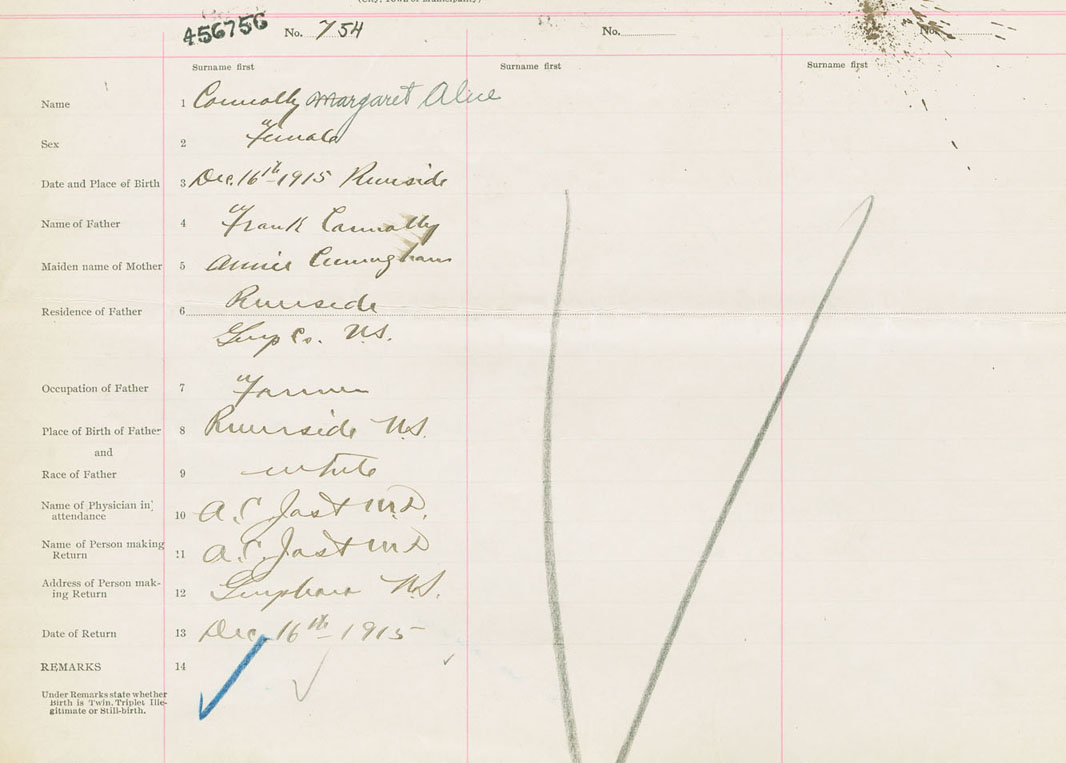 (City, Town or Municipality)
456756 No. 754 No. No.
Surname first Surname first Surname first
Name 1 Connolly Margaret Alice
Sex 2 Female
Date and Place of Birth 3 Dec. 16th 1915 Riverside
Name of Father 4 Frank Connolly
Maiden name of Mother 5 Annie Cunningham
Residence of Father 6 Riverside
Guys Co. N.S.
Occupation of Father 7 Farmer
Place of Birth of Father 8 Riverside N.S.
and
Race of Father 9 White
Name of Physician in
attendance 10 A. C. Jost M.D.
Name of Person making
Return 11 A. C. Jost M D
Address of Person mak-
ing Return 12 Guysboro N.S.
Date of Return 13 Dec 16th 1915
REMARKS 14
Under Remarks state whether
Birth is Twin, Triplet Ille-
gitimate or Still-birth.